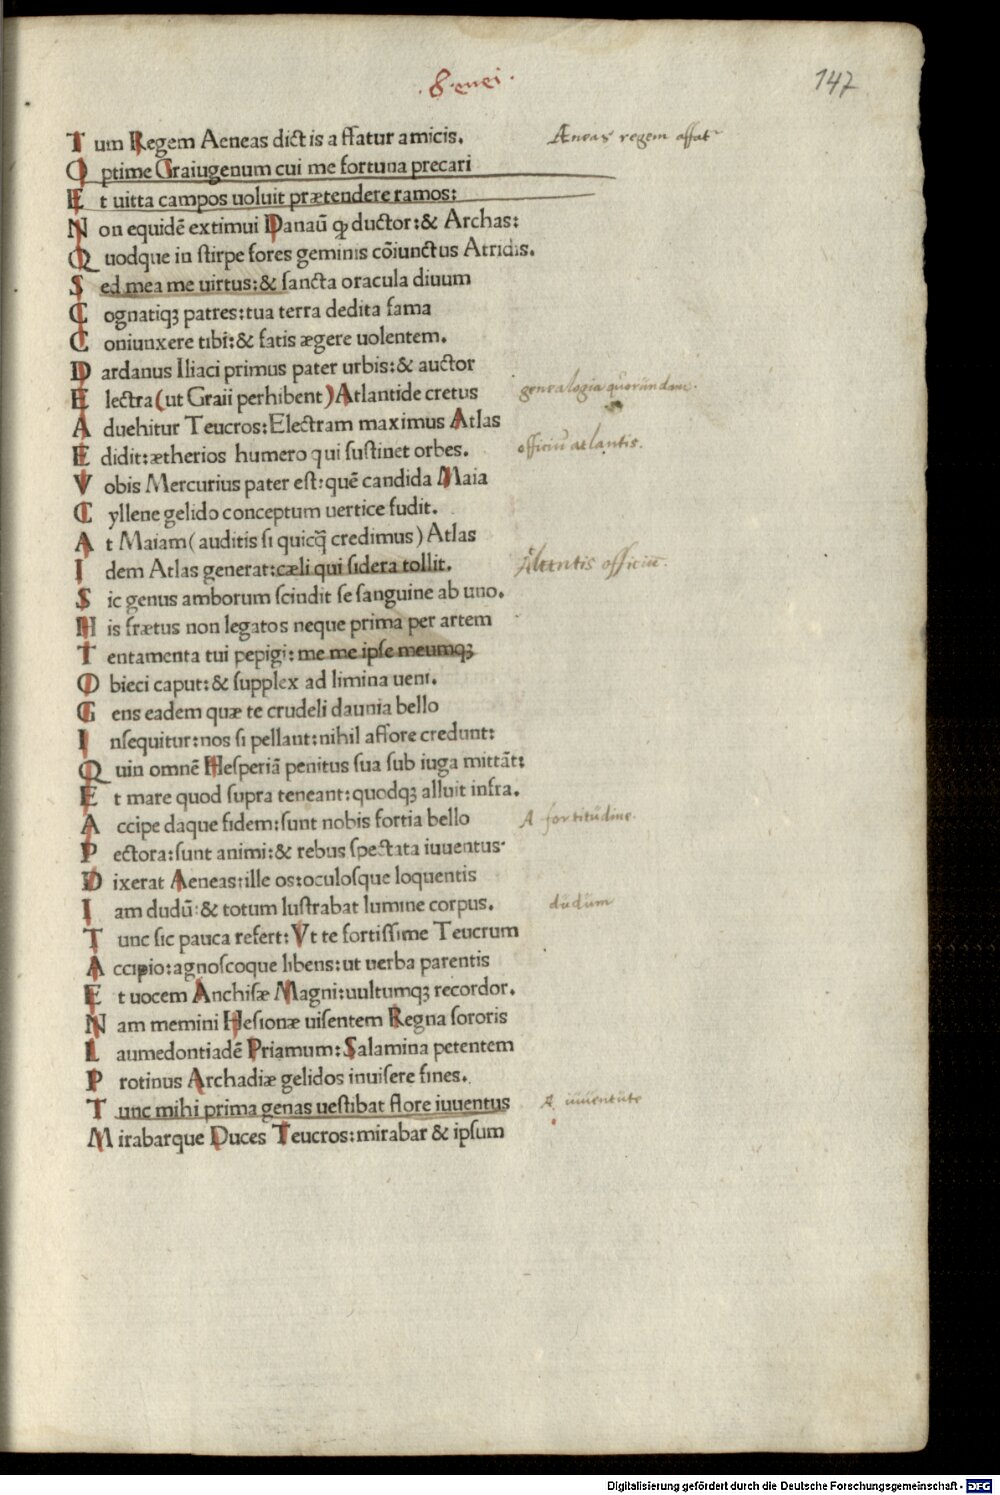 .8.enei.
147
Tum Regem Aeneas dictis affatur amicis.
Æneas regem affat
Optime Graiugenum cui me fortuna precari
Et uitta campos uoluit prætendere ramos:
Non equidē extimui Danaū ꝙ ductor:& Archas:
Quodque in stirpe fores geminis cōiunctus Atridis.
Sed mea me uirtus:& sancta oracula diuum
Cognatiqꝫ patres:tua terra dedita fama
Coniunxere tibi:& fatis ægere uolentem.
Dardanus Iliaci primus pater urbis:& auctor
Electra(ut Graii perhibent)Atlantide cretus
genealogia quorundam.
Aduehitur Teucros:Electram maximus Atlas
Edidit:ætherios humero qui sustinet orbes.
officiū atlantis.
Vobis Mercurius pater est:quē candida Maia
Cyllene gelido conceptum uertice fudit.
At Maiam(auditis si quicq̄ credimus)Atlas
Idem Atlas generat:cæli qui sidera tollit.
Atlentis officiū.
Sic genus amborum scindit se sanguine ab uno.
His frætus non legatos neque prima per artem
Tentamenta tui pepigi:me me ipse meumqꝫ
Obieci caput:& supplex ad limina ueni.
Gens eadem quæ te crudeli daunia bello
Insequitur:nos si pellant:nihil affore credunt:
Quin omnē Hesperiā penitus sua sub iuga mittāt:
Et mare quod supra teneant:quodqꝫ alluit infra.
Accipe daque fidem:sunt nobis fortia bello
A fortitudine.
Pectora:sunt animi:& rebus spectata iuuentus.
Dixerat Aeneas:ille os:oculosque loquentis
Iam dudū:& totum lustrabat lumine corpus.
dudum
Tunc sic pauca refert:Vt te fortissime Teucrum
Accipio:agnoscoque libens:ut uerba parentis
Et uocem Anchisæ Magni:uultumqꝫ recordor.
Nam memini Hesionæ uisentem Regna sororis
Laumedontiadē Priamum:Salamina petentem
Protinus Archadiæ gelidos inuisere fines.
Tunc mihi prima genas uestibat flore iuuentus
A iuuentute
Mirabarque Duces Teucros:mirabar & ipsum
Digitalisierung gefördert durch die Deutsche Forschungsgemeinschaft - DFG